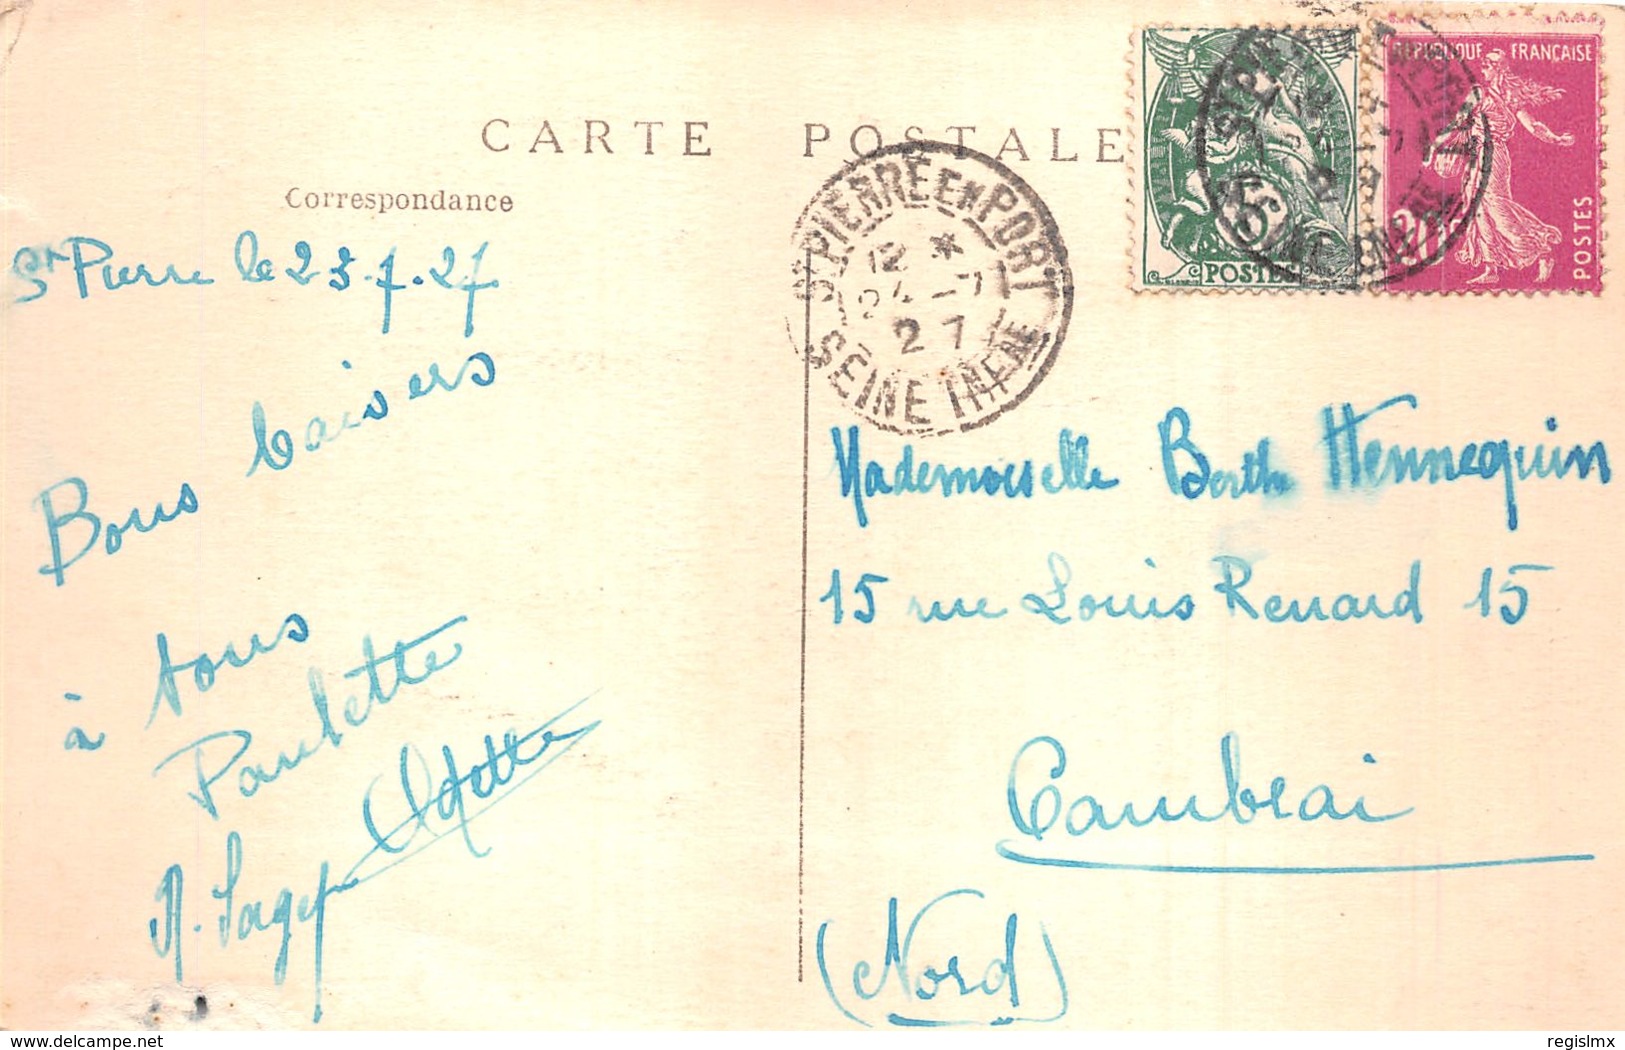 CARTE POSTALE
Correspondance
St Pierre le 23.7.27
Bons baisers
à tous
Paulette
Odette
ST PIERRE EN PORT
12 *
24 -7
27
SEINE INFRE
5c
POSTES
REPUBLIQUE FRANÇAISE
20c
POSTES
Mademoiselle Berthe Hennequin
15 rue Louis Renard 15
Cambrai
(Nord)
delcampe.net
regislmx